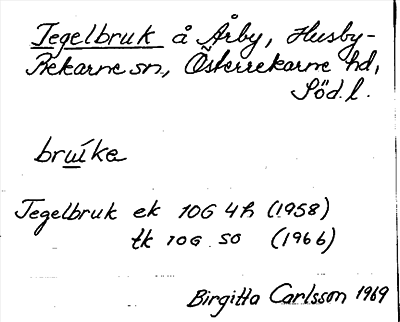 Tegelbruk å Årby, Husby-
Rekarne sn, Österrekarne hd,
Söd.l.
bruíka
Tegelbruk ek 10G 4h (1958)
tk 10G SO (1966)
Birgitta Carlsson 1969